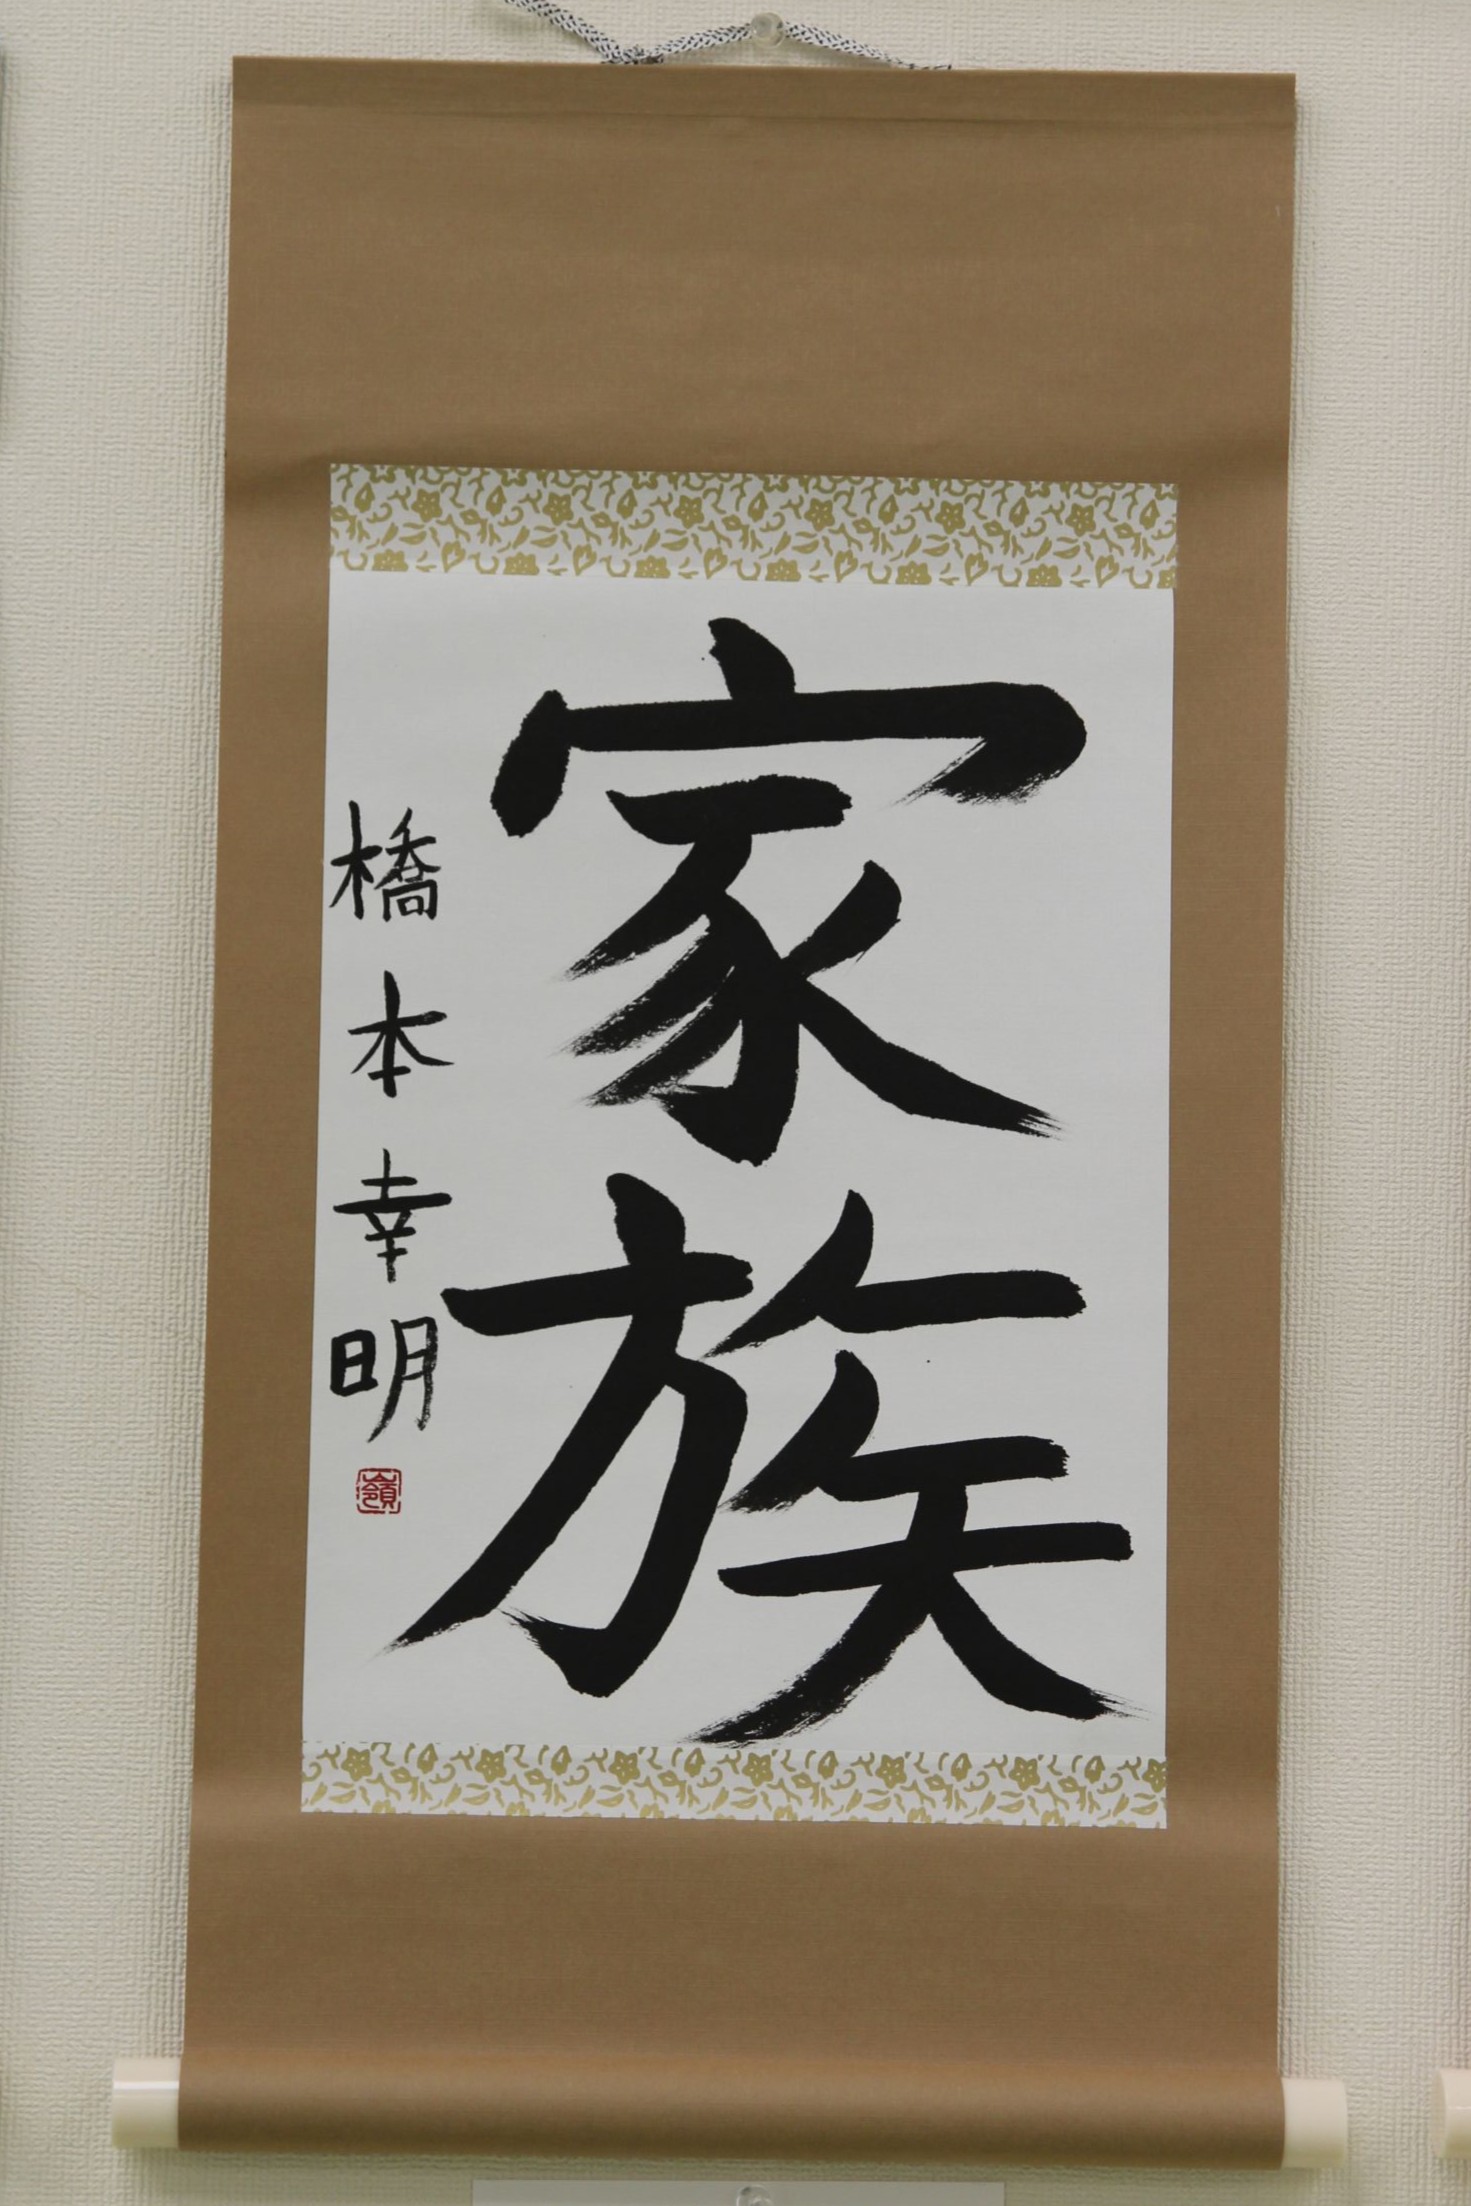 家族
橋本幸明
嶺